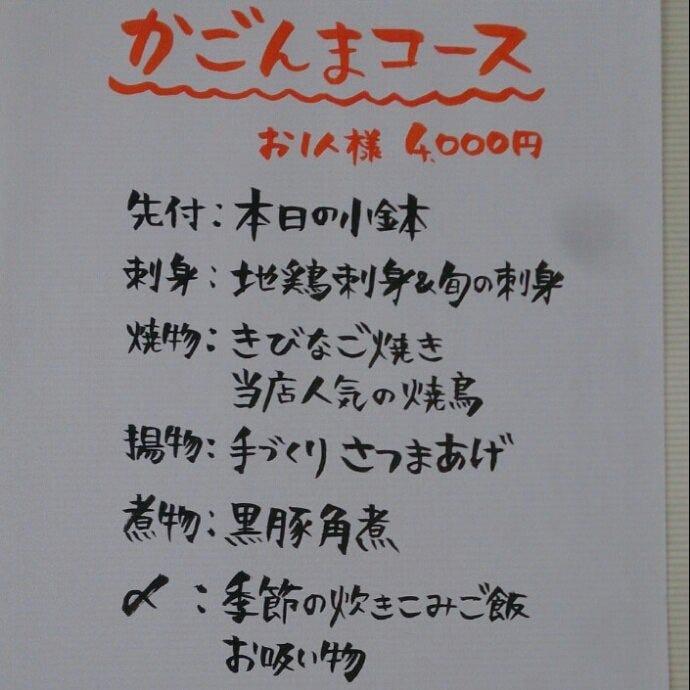 かごんまコース
お1人様 4,000円
先付：本日の小鉢
刺身：地鶏刺身&旬の刺身
焼物：きびなご焼き
当店人気の焼鳥
揚物：手づくりさつまあげ
煮物：黒豚角煮
〆：季節の炊きこみご飯
お吸い物